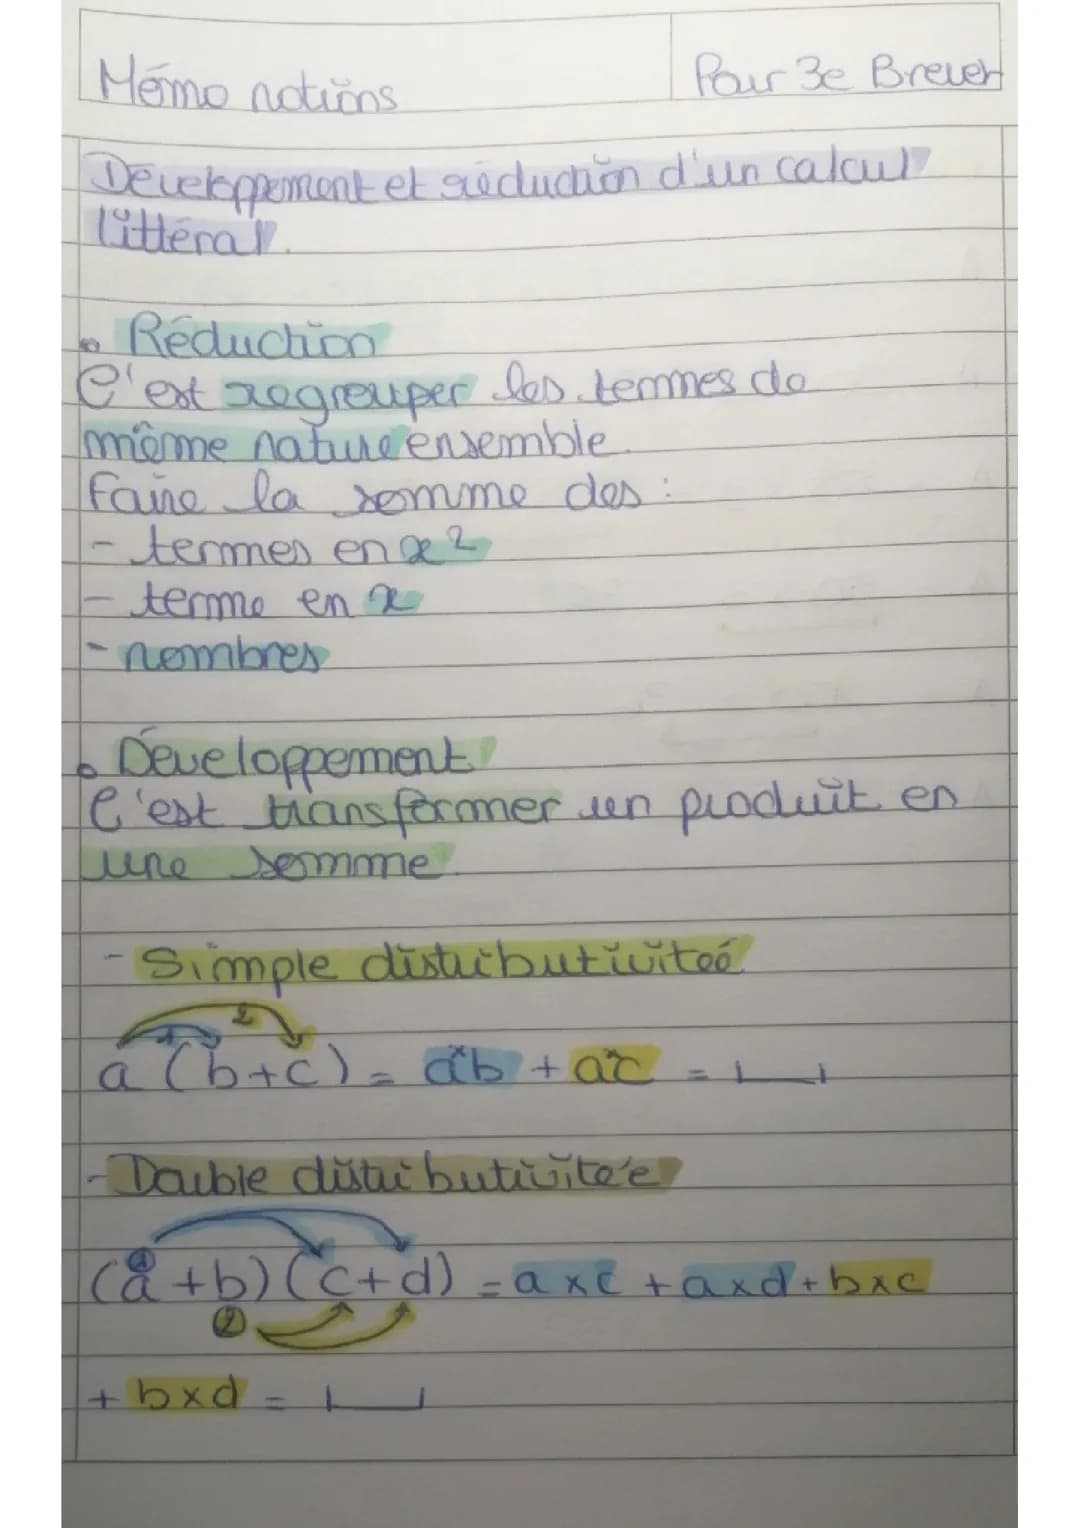 Mémo notions
Pour 3e Brevet
Développement et réduction d'un calcul
littéral.
• Réduction
C'est regrouper les termes de
même nature ensemble.
Faire la somme des :
- termes en x²
- terme en x
- nombres
• Développement
C'est transformer un produit en
une somme.
- Simple distributivitée
1 2
a (b+c) = a×b + a×c = ⎵
- Double distributivitée
1
(a+b)(c+d) = a×c + a×d + b×c
2
+ b×d = ⎵